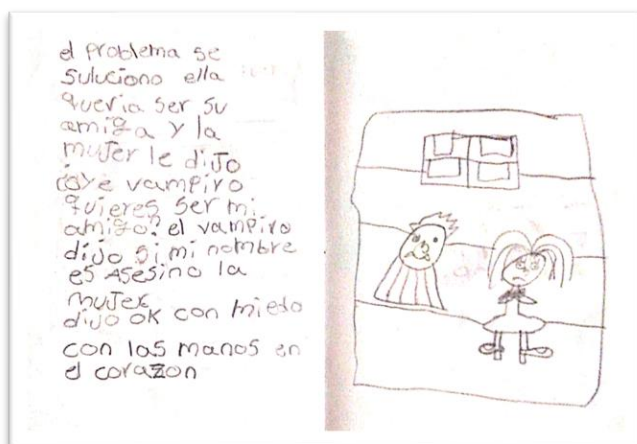 el problema se
suluciono ella
queria ser su
amiga y la
mujer le dijo
oye vampiro
quieres ser mi
amigo? el vampiro
dijo si mi nombre
es Asesino la
mujer
dijo ok con miedo
con las manos en
el corazon